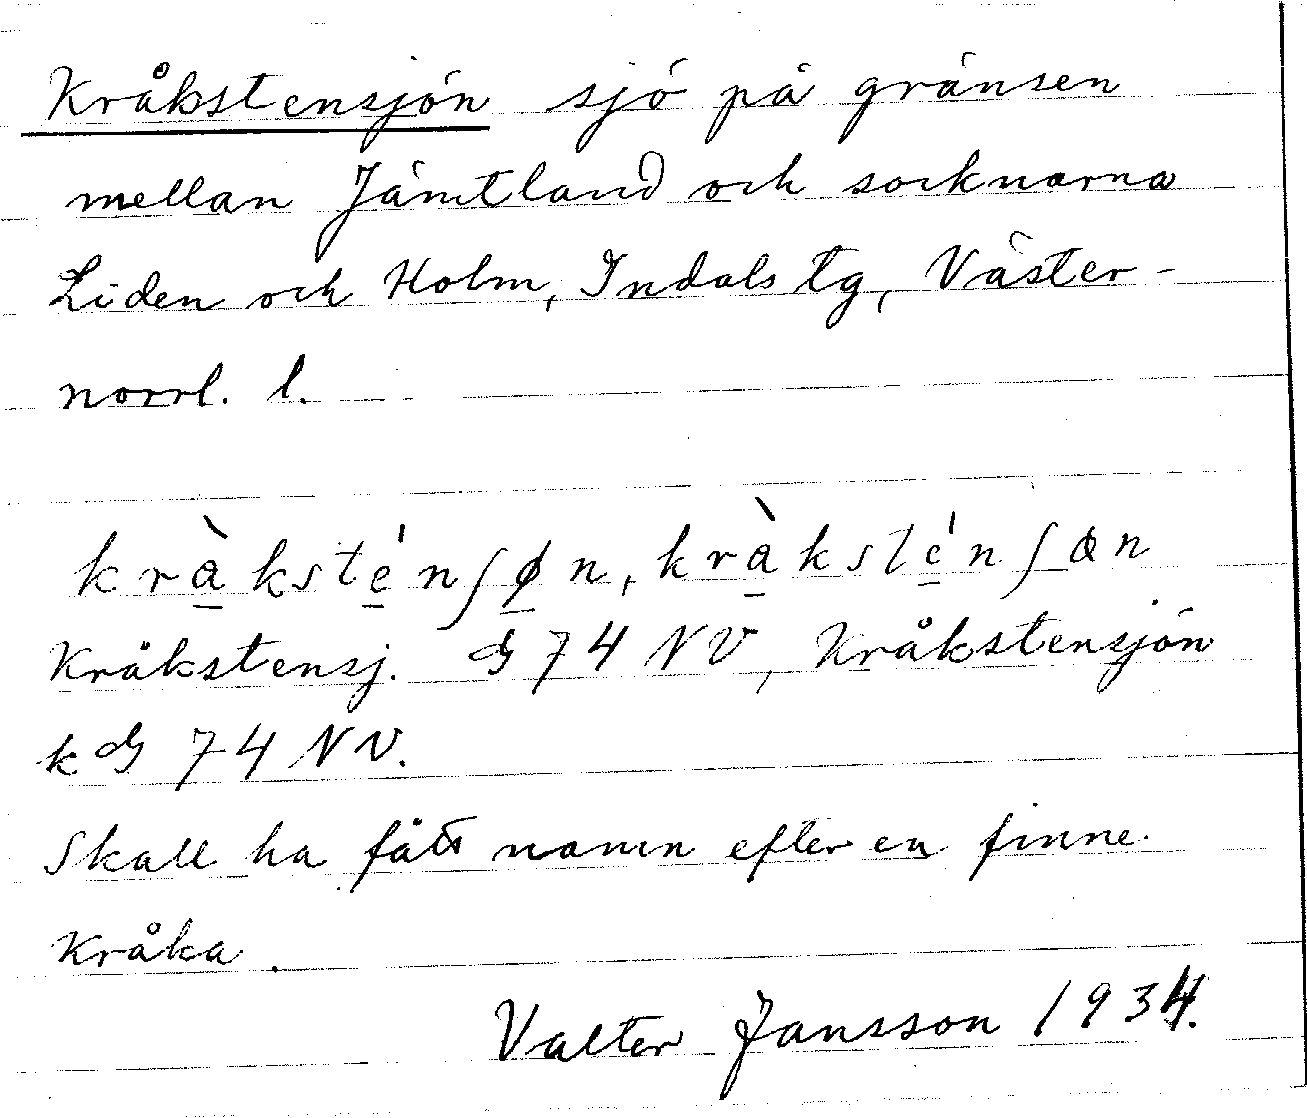 Kråkstensjön sjö på gränsen
mellan Jämtland och socknarna
Liden och Holm, Indals tg, Väster-
norrl. l.
kràksténʃøn, kràksténʃɑn
Kråkstensj. G 74 NV, Kråkstensjön
kG 74 NV.
Skall ha fått namn efter en finne
Kråka.
Valter Jansson 1934.